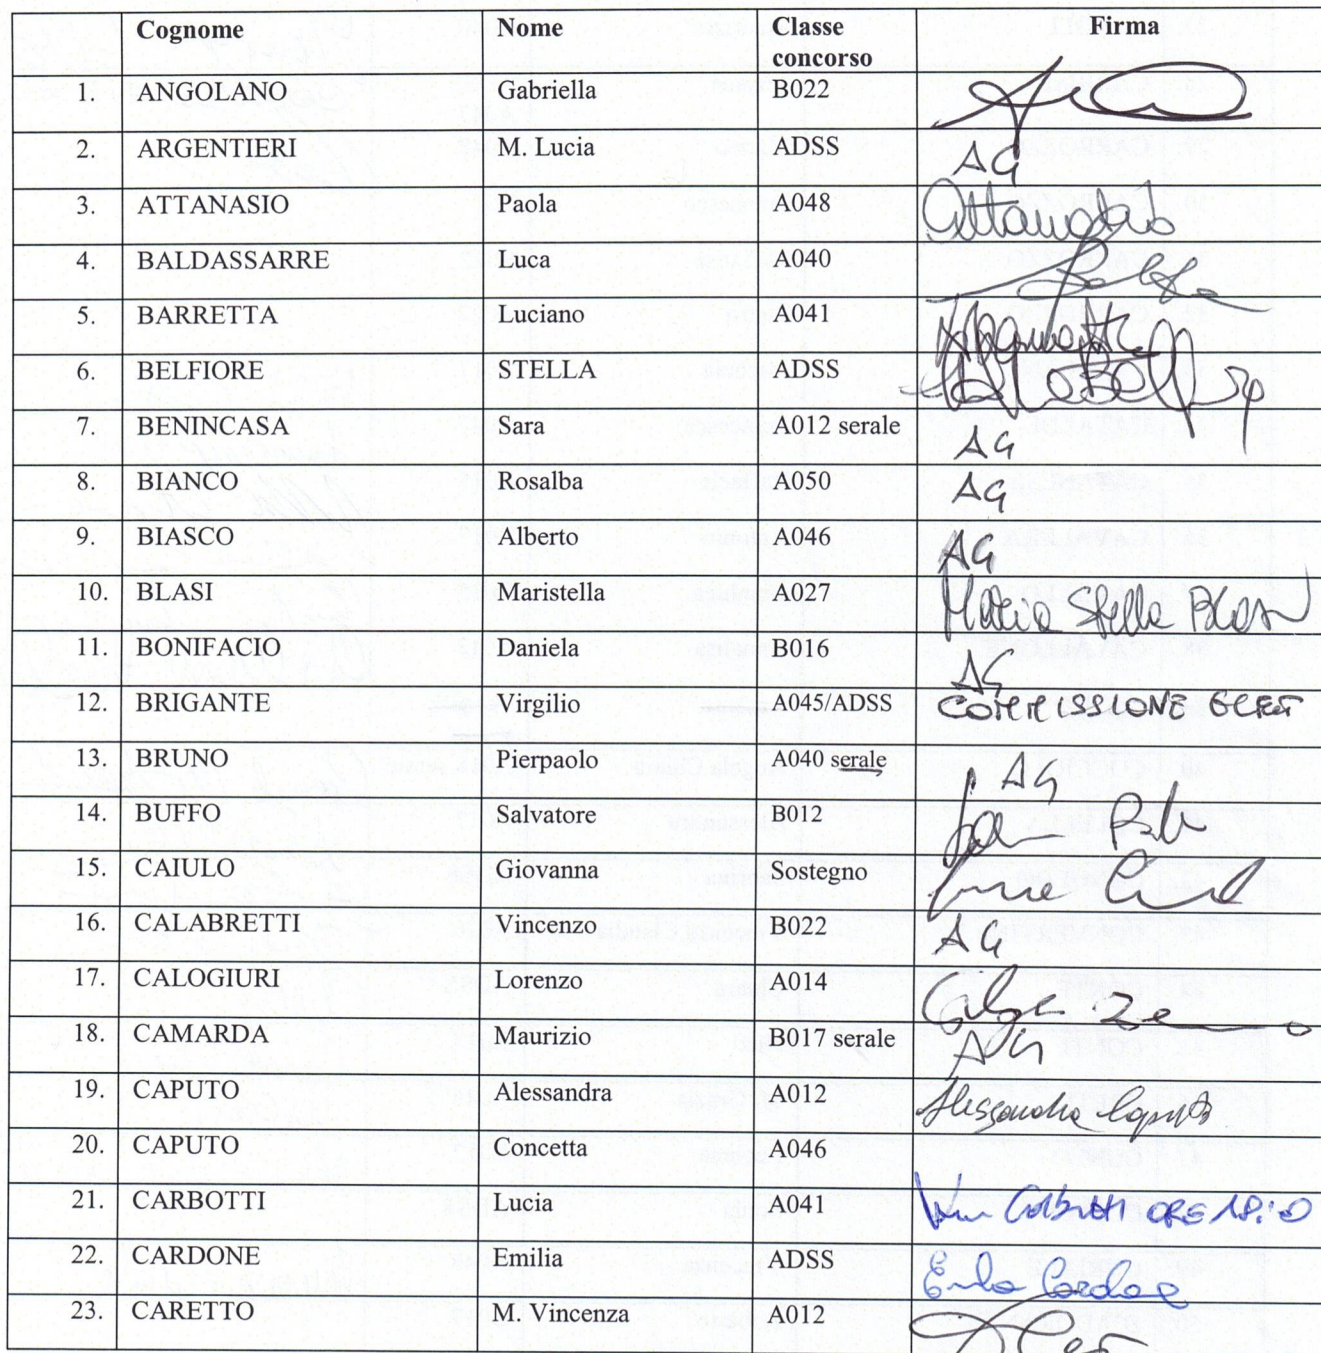 Cognome Nome Classe concorso Firma
1. ANGOLANO Gabriella B022
2. ARGENTIERI M. Lucia ADSS AG
3. ATTANASIO Paola A048 Attanasio
4. BALDASSARRE Luca A040
5. BARRETTA Luciano A041
6. BELFIORE STELLA ADSS
7. BENINCASA Sara A012 serale AG
8. BIANCO Rosalba A050 AG
9. BIASCO Alberto A046 AG
10. BLASI Maristella A027 Maria Stella Blasi
11. BONIFACIO Daniela B016 AG
12. BRIGANTE Virgilio A045/ADSS COMMISSIONE
13. BRUNO Pierpaolo A040 serale AG
14. BUFFO Salvatore B012
15. CAIULO Giovanna Sostegno
16. CALABRETTI Vincenzo B022 AG
17. CALOGIURI Lorenzo A014
18. CAMARDA Maurizio B017 serale AG
19. CAPUTO Alessandra A012 Alessandra Caputo
20. CAPUTO Concetta A046
21. CARBOTTI Lucia A041 Carbotti ORE
22. CARDONE Emilia ADSS Emilia Cardone
23. CARETTO M. Vincenza A012